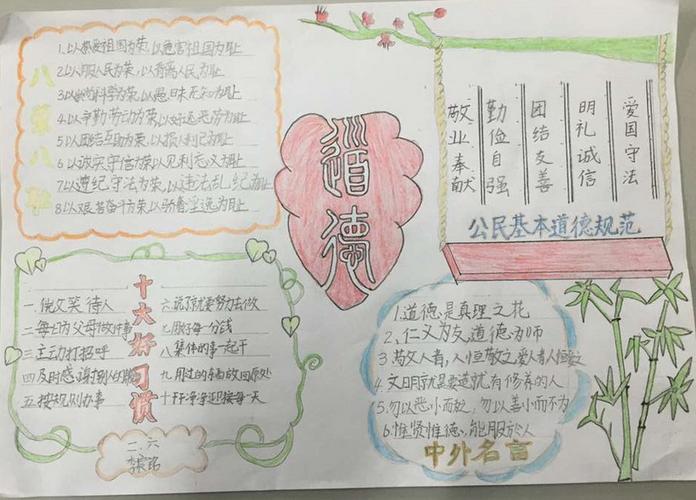 八荣八耻
1.以热爱祖国为荣,以危害祖国为耻
2.以服务人民为荣,以背离人民为耻
3.以崇尚科学为荣,以愚昧无知为耻
4.以辛勤劳动为荣,以好逸恶劳为耻
5.以团结互助为荣,以损人利己为耻
6.以诚实守信为荣以见利忘义为耻
7.以遵纪守法为荣,以违法乱纪为耻
8.以艰苦奋斗为荣以骄奢淫逸为耻
道德
爱国守法
明礼诚信
团结友善
勤俭自强
敬业奉献
公民基本道德规范
十大好习惯
一微笑待人
二每日为父母做件事
三主动打招呼
四及时感谢别人的
五按规则办事
六说了就要努力去做
七用好每一分钱
八集体的事一起干
九用过的放回原处
十干干净净迎接每一天
二、六
1.道德是真理之花
2、仁义为友道德为师
3敬人者,人恒敬之爱人者人恒爱之
4文明就是要造就有修养的人
5勿以恶小而为,勿以善小而不为
6.惟贤惟德,能服于人
中外名言